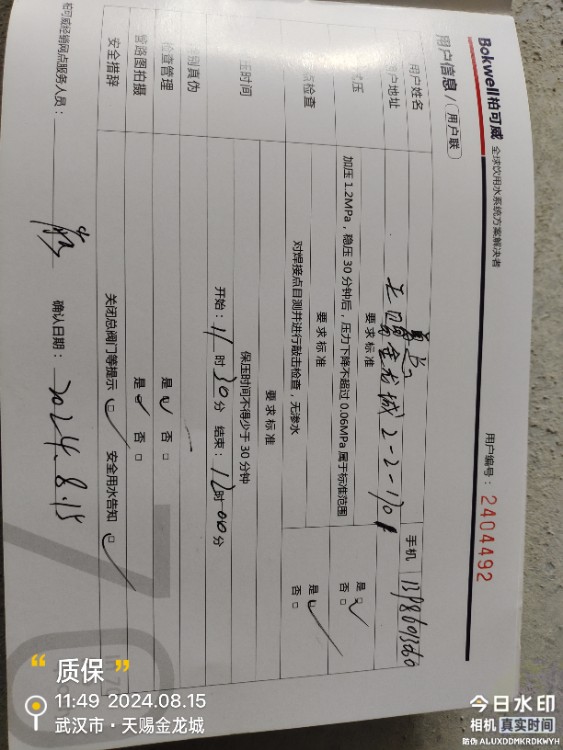 Bokwell柏可威 全球饮用水系统方案解决者
用户编号：2404492
用户信息 / 用户联
用户姓名
手机
户地址 天赐金龙城2-2-1701
压
要求标准
加压 1.2MPa，稳压 30 分钟后，压力下降不超过 0.06MPa 属于标准范围
是 □ ✓
否 □
检查
要求标准
对焊接点目测并进行敲击检查，无渗水
是 □ ✓
否 □
压时间
要求标准
保压时间不得少于 30 分钟
开始：11 时 30 分 结束：12 时 00 分
别真伪
检查管理
是 □ ✓ 否 □
管路图拍摄
是 □ ✓ 否 □
安全措辞
关闭总阀门等提示 □ ✓ 安全用水告知 □ ✓
柏可威经销网点服务人员：
确认日期：2024.8.15
“ 质保 ”
11:49 2024.08.15
武汉市·天赐金龙城
今日水印
相机 真实时间
防伪 ALUXDDMKRDKWYH